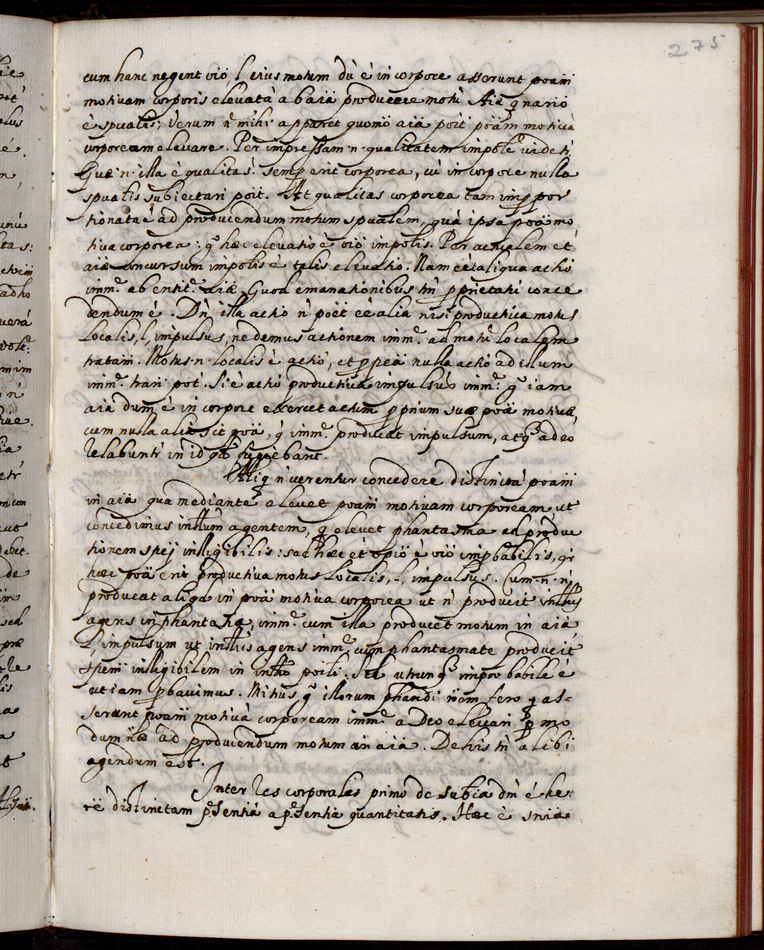 275
cum hanc negent oïo l eius motum dū ē in corpore asserunt poäm
motivam corporis elevatā ab aïa producere motū. Aïa
ē spualis: Verum n̄ mihi apparet quomō aïa poit poäm motivā
corpoream elevare. Per impressam n. qualitatem impole videt
Quæ n. illa ē qualitas: semp erit corporea, cū in corpore nulla
spualis subiectari poit. At qualitas corporea tam impropor
tionata ē ad producendum motum spualem, quā ipsa poä mo
tiva corporea: g hæc elevatio ē oïo impolis. Per actualem et
aïæ concursum impolis ē talis elevatio. Nam cē aliqua actio
imm. ab entit. aïæ. Quod emanationibus tn̄ proprietati conce
dendum ē. Dn̄ illa actio n̄ poët eē alia nisi productiva motus
localis, l, impulsus, ne demus actionem imm. ad motū localem
tratam. Motus n. localis ē actio, et propea nulla actio ad illum
imm. trari pot. Si ē actio productiva impulsus imm. g iam
aïa dum ē in corpore exercet actum proprium suæ poä motivæ,
cum nulla alia sit poä, q imm. producat impulsum, atq adeo
relabuntr in id qd fugiebant.
Aliq n̄ verentur concedere distinctā poäm
in aïa qua mediante elevet poäm motivam corpoream, ut
concedimus intllum agentem, q elevet phantasma ad produc
tionem speij intlligibilis: sed hæc et opio ē oïo improbabilis, qr
hæc poä erit productiva motus localis, l, impulsus. Cum n. n̄
producat aliqd in poä motiva corporea ut n̄ producit intllus
agens in phantasia, imm. cum illa producet motum in aïa
l, impulsum ut intllus agens imm. cum phantasmate producit
spem intlligibilem in intllo poili. Sed utrunq improbabile ē
ut iam probavimus. Mitius g illorum phandi nöm fero q as-
serunt poäm motivā corpoream imm. a Deo elevari p mo
dum næ ad producendum motum in aïa. De his tn̄ alibi
agendum est.
Inter res corporales primo de subia dn̄ ē hē
rē distinctam pstentiā a pstentia quantitatis. Hæc ē snïa